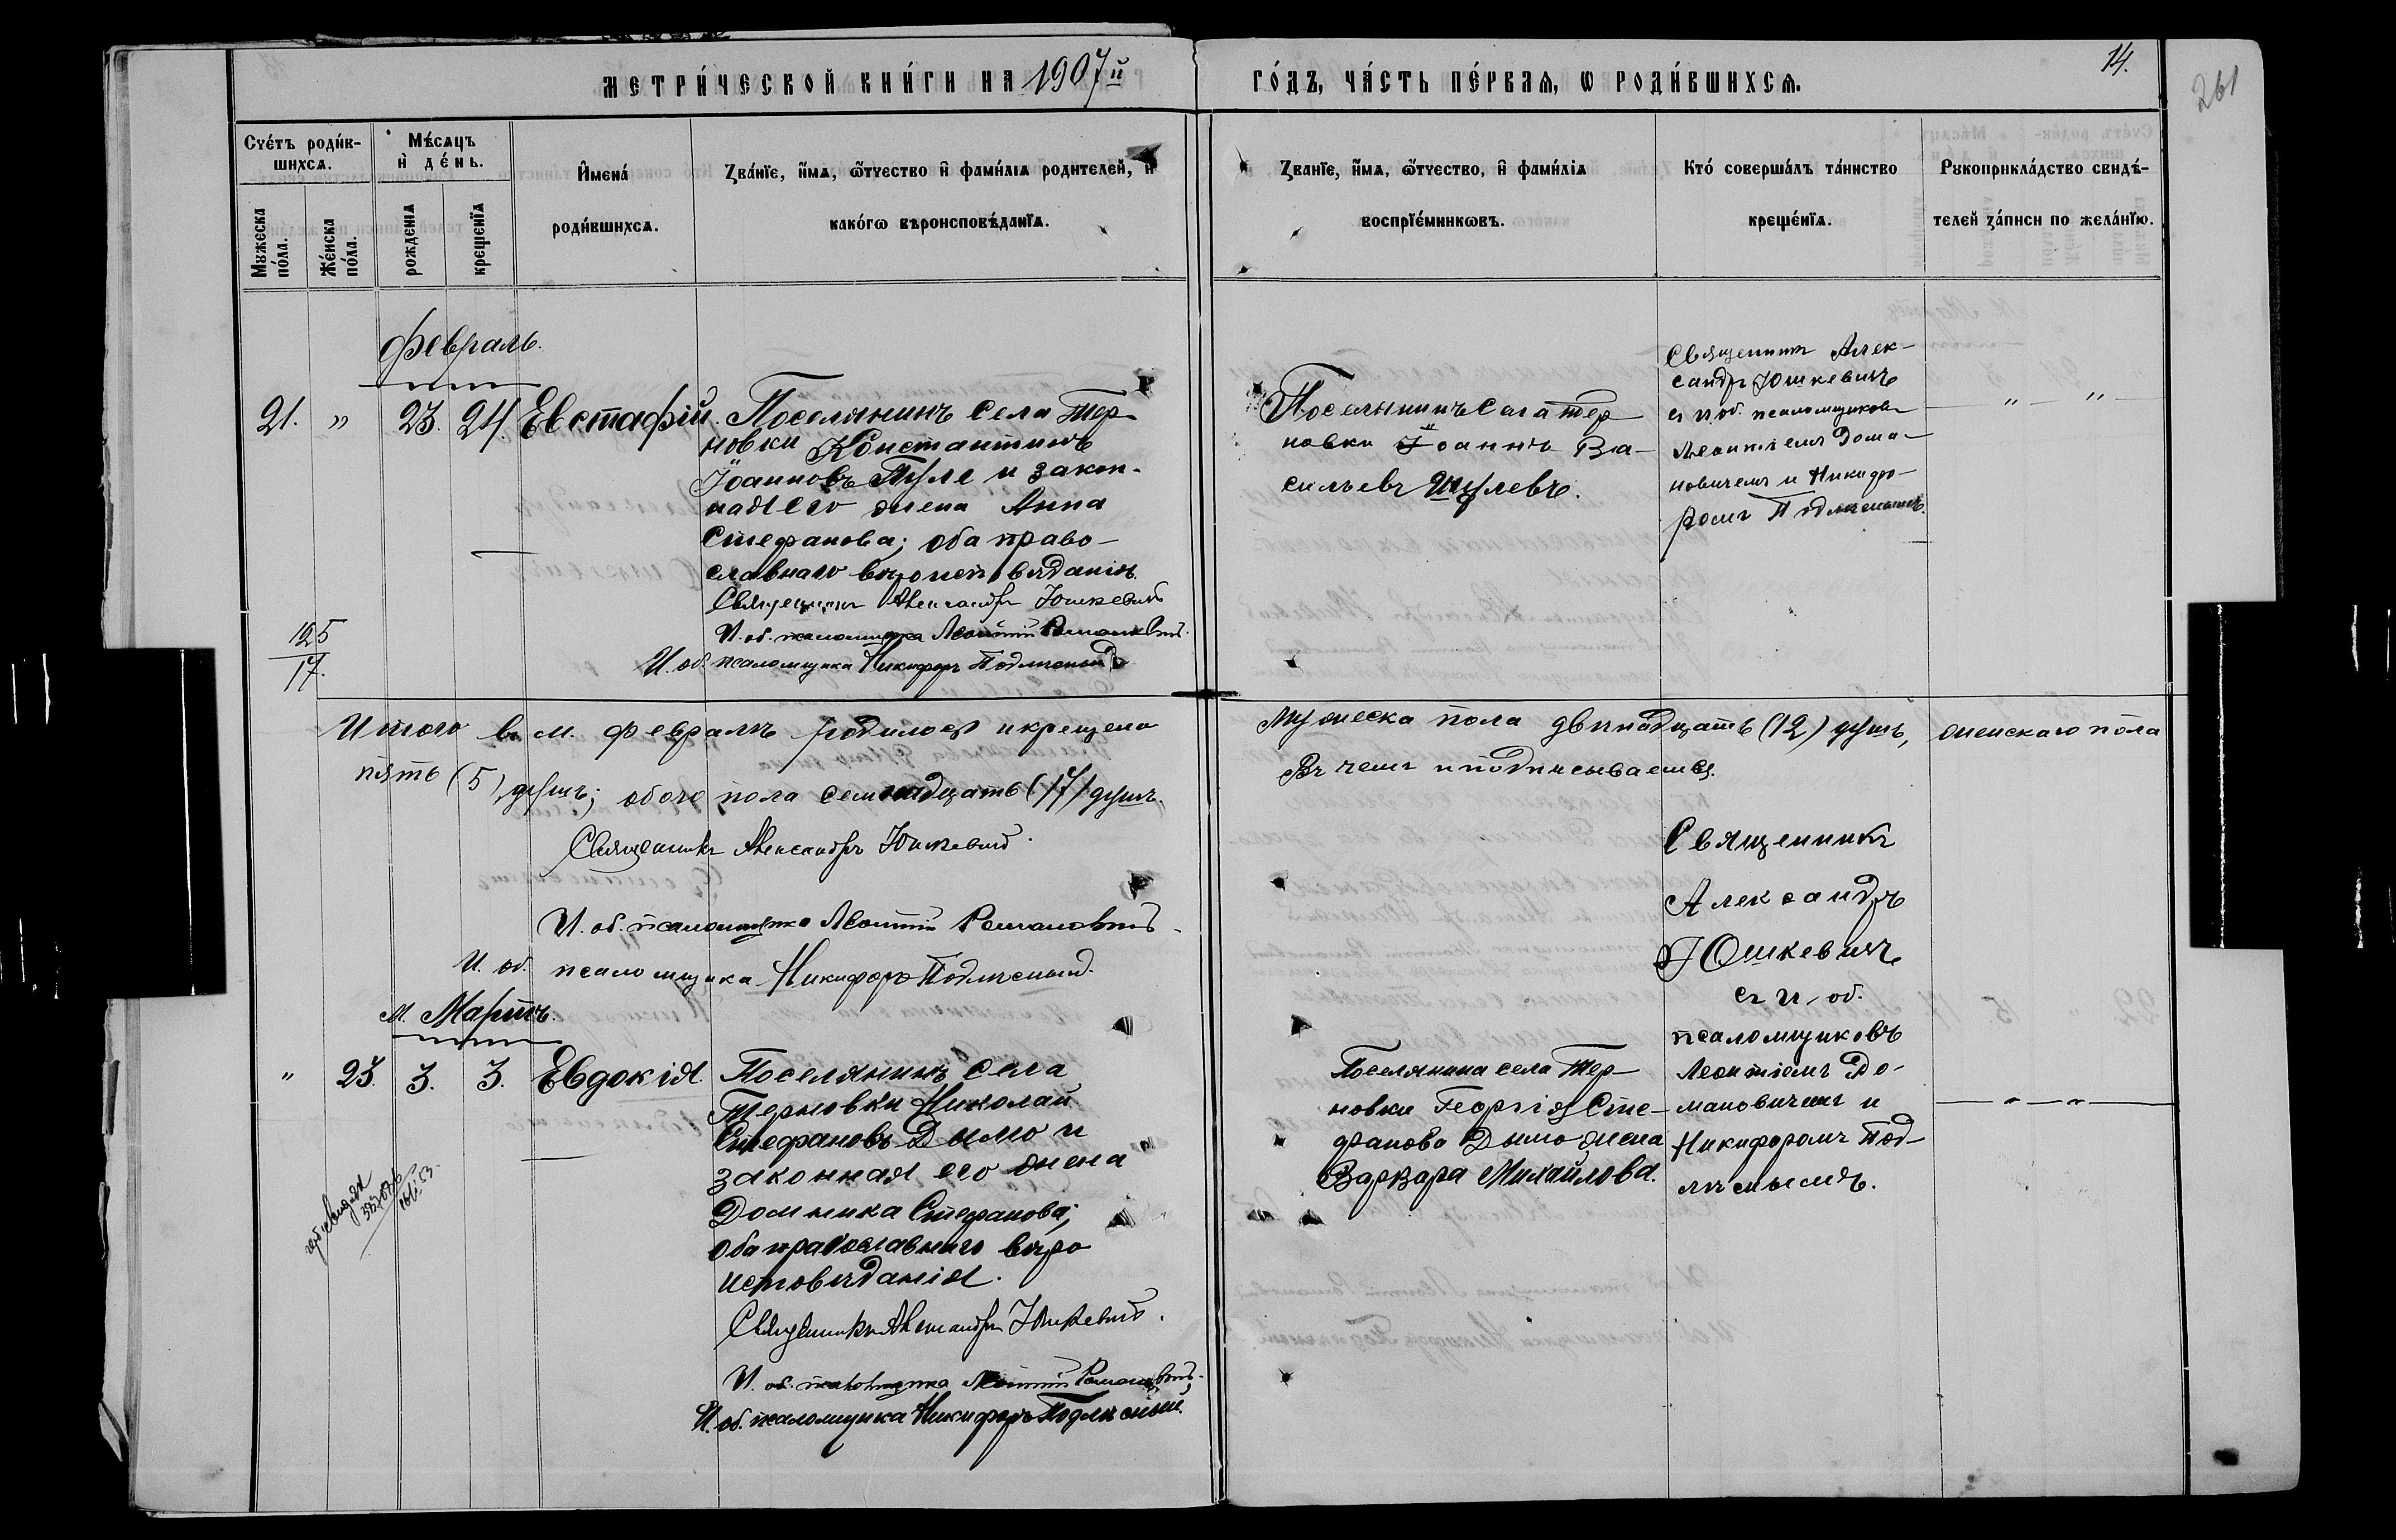 МЕТРИ́ЧЕСКОЙ КНИ́ГИ НА 1907й
ГО́ДЪ, ЧА́СТЬ ПЕ́РВАѦ, Ѡ РОДИ́ВШИХСѦ.
14.
261
Счѐтъ роди́в-
шихсѧ.
Мꙋжеска
по́ла.
Же́нска
по́ла.
Мѣ́сѧцъ
и҆ де́нь.
рожденїѧ
крещенїѧ
И҆мена́
роди́вшихсѧ.
Зва́нїе, и҆́мѧ, ѻ҆́тчество и҆ фами́лїѧ родителей, и҆
како́гѡ вѣроисповѣ́данїѧ.
Зва́нїе, и҆́мѧ, ѻ҆́тчество, и҆ фами́лїѧ
воспрїе́мникѡвъ.
Кто́ соверша́лъ та́инство
креще́нїѧ.
Рꙋкоприкла́дство свидѣ́-
телей за́писи по жела́нїю.
Февраль.
21. „ 23. 24. Евстафій.
Поселянинъ села Тер-
новки Константинъ
Іоанновъ Пуле и закон-
ная его жена Анна
Стефанова; оба право-
славнаго вѣроисповѣданія.
Священникъ Александръ Юшкевичъ
И. об. псаломщика Леонтій Романовичъ.
И. об. псаломщика Никифоръ Подлѣсный
Поселянинъ села Тер-
новки Іоаннъ Ва-
сильевъ Шулевъ.
Священникъ Алек-
сандръ Юшкевичъ
съ и об. псаломщиковъ
Леонтіемъ Рома-
новичемъ и Никифо-
ромъ Подлѣснымъ.
„ „
125
17.
Итого въ м. Февралѣ родилося и крещено
Мужеска пола двѣнадцать (12) душъ, женскаго пола
пять (5) душъ; обоего пола семнадцать (17) душъ.
Въ чемъ и подписываемся.
Священникъ Александръ Юшкевичъ.
И. об. псаломщика Леонтій Романовичъ.
И. об. псаломщика Никифоръ Подлѣсный.
М. Мартъ.
" 23. 3. 3. Евдокія.
Поселянинъ села
Терновки Николай
Стефановъ Дымо и
законная его жена
Домника Стефанова;
оба православнаго вѣро
исповѣданія.
Священникъ Александръ Юшкевичъ.
И. об. псаломщика Леонтій Романовичъ.
И. об. псаломщика Никифоръ Подлѣсный.
Поселянина села Тер-
новки Георгія Сте-
фанова Дымо жена
Варвара Михайлова.
Священникъ
Александръ
Юшкевичъ
съ и. об.
псаломщиковъ
Леонтіемъ Ро-
мановичемъ и
Никифоромъ Под-
лѣснымъ.
" "